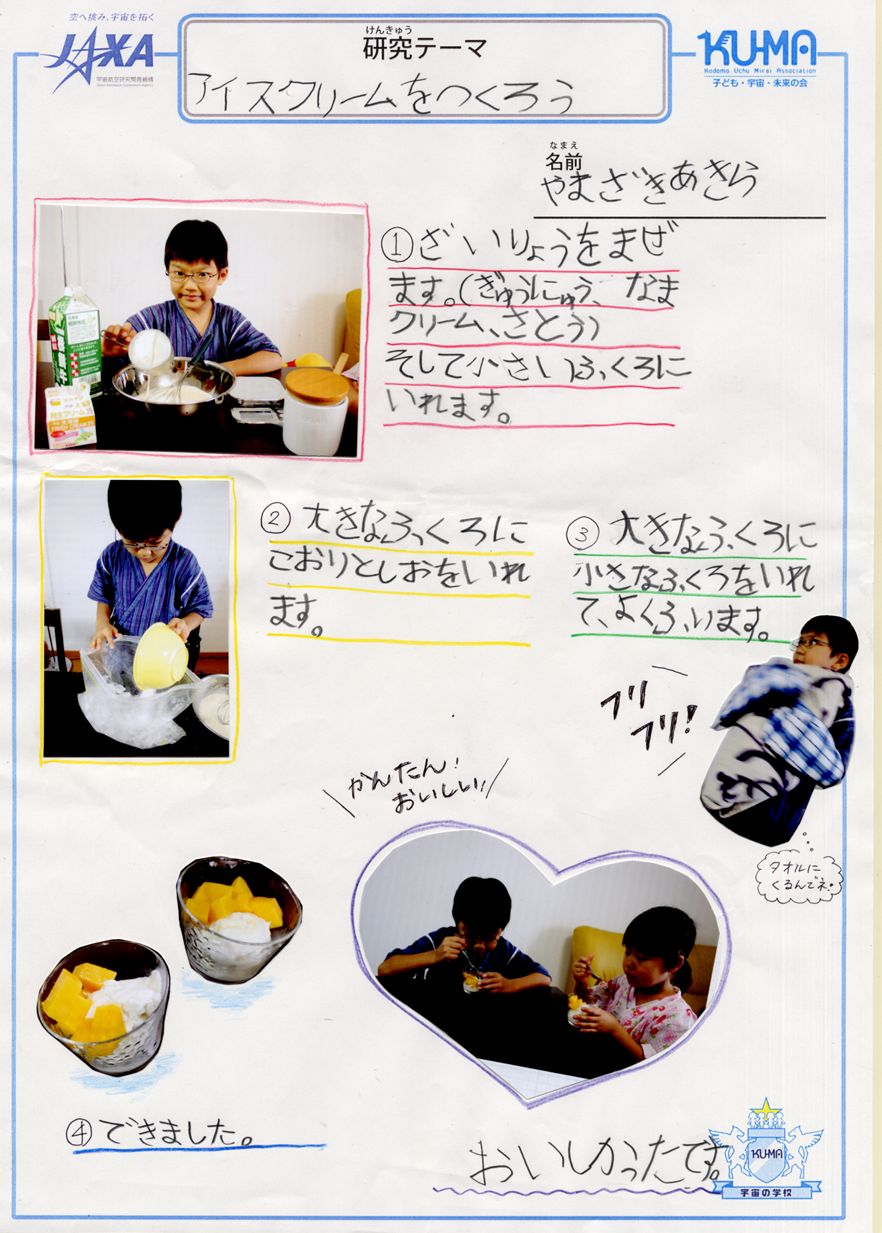 空へ挑み、宇宙を拓く
JAXA
宇宙航空研究開発機構
Japan Aerospace Exploration Agency
けんきゅう
研究テーマ
アイスクリームをつくろう
KU-MA
Kodomo Uchu Mirai Association
子ども・宇宙・未来の会
なまえ
名前
やまざきあきら
①ざいりょうをまぜ
ます。(ぎゅうにゅう、なま
クリーム、さとう)
そして小さいふくろに
いれます。
②大きなふくろに
こおりとしおをいれ
ます。
③大きなふくろに
小さなふくろをいれ
て、よくふります。
フリ
フリ!
タオルに
くるんでネ。
かんたん!
おいしい!
④できました。
おいしかったです。
KU-MA
宇宙の学校